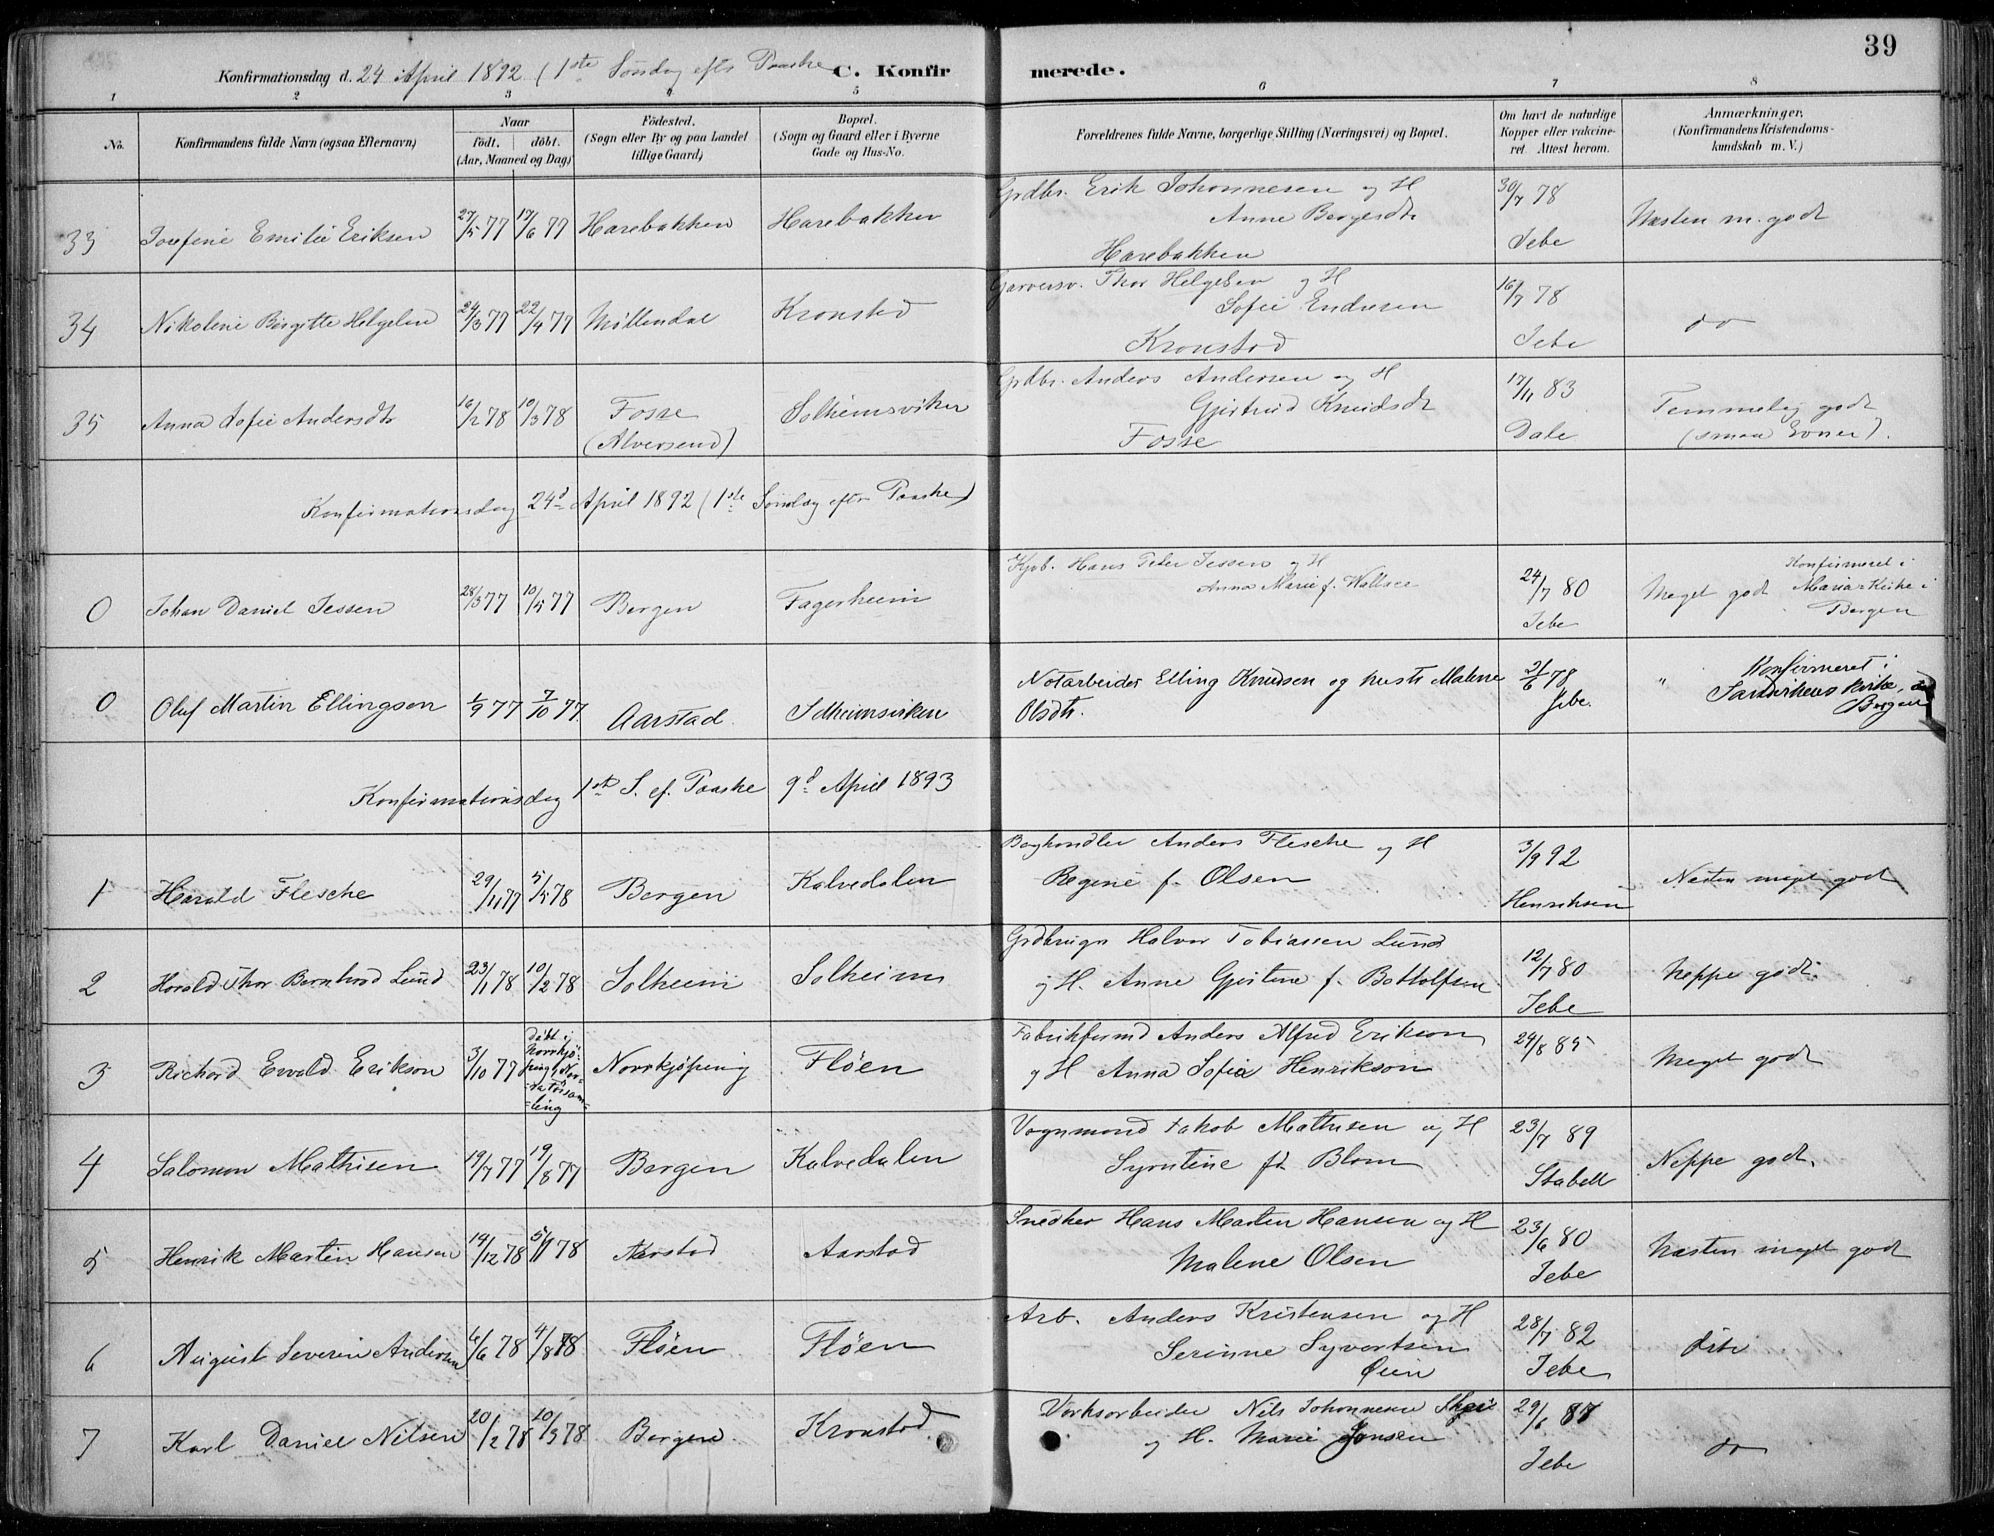 39
Konfirmationsdag d. 24 April 1892 (1ste Søndag eftr Paaske C. Konfirmerede.
1 2 3 4 5 6 7 8
No.
Konfirmandens fulde Navn (ogsaa Efternavn)
Naar
født. døbt.
(Aar, Maaned og Dag)
Fødested.
(Sogn eller By og paa Landet
tillige Gaard)
Bopæl.
(Sogn og Gaard eller i Byerne
Gade og Hus-No.
Forældrenes fulde Navne, borgerlige Stilling (Næringsvei) og Bopæl.
Om havt de naturlige
Kopper eller vakcine-
ret Attest herom.
Anmærkninger.
(Konfirmandens Kristendoms-
kundskab m. V.)
33 Josefine Emilie Eriksen 27/5 77 17/6 77 Harebakken Harebakken
Grdbr. Erik Johannesen og H
Anne Bergesdtr
Harebakken
30/7 78
Jebe
Næsten m. godt
34 Nikoline Birgitte Helgesen 24/3 77 22/4 77 Møllendal Kronstad
Garversv. Thor Helgesen og H
Sofie Endresen
Kronstad
16/7 78
Jebe
do
35 Anna Sofie Andersdtr 16/2 78 10/3 78 Fosse
(Alversund)
Solheimsviken
Grdbr. Anders Andersen og H
Gjertrud Knudsdt
Fosse
17/11 83
Dale
Temmelig godt
(smaa Evner).
Konfirmationsdag 24d April 1892 (1ste Søndag eftr Paaske)
0 Johan Daniel Jessen 28/3 77 10/5 77 Bergen Fagerheim
Kjøb. Hans Peter Jessen og H
Anna Marie f. Wallace
24/7 80
Jebe
Meget godt
Konfirmeret i
Maria Kirke i
Bergen
0 Oluf Martin Ellingsen 1/9 77 7/10 77. Aarstad. Solheimsviken
Notarbeider Elling Knudsen og hustr Malene
Olsdtr.
2/6 78
Jebe.
" Konfirmeret i
Sandvikens kirke,
Bergen
Konfirmationsdag 1ste S. ef. Paaske 9d April 1893
1 Harald Flesche 29/11 77 5/5 78 Bergen Kalvedalen
Boghandler Anders Flesche og H
Regine f. Olsen
3/9 92
Henriksen
Næsten meget godt
2 Harald Thor Bernhard Lund 23/1 78 10/2 78 Solheim Solheim
Grdbruger Halvor Tobiassen Lund
og H. Anne Gjertine f. Bottolfsen
12/7 80
Jebe
Neppe godt.
3 Richard Ewald Erikson 3/10 77 døbt i
Norrkjö-
ping
Norrkjøping Fløen
Fabrikformd Anders Alfred Erikson
og H Anna Sofia Henrikson
24/8 85
Meget godt
4 Salomon Mathisen 19/7 77 19/8 77 Bergen Kalvedalen
Vognmand Jakob Mathisen og H
Syrntine f. Blom
23/7 89
Stabell
Neppe godt.
5 Henrik Martin Hansen 19/12 78 5/1 78 Aarstad Aarstad
Snedker Hans Martin Hansen og H
Malene Olsen
23/6 80
Jebe
Næsten meget godt
6 August Severin Andersen 6/6 78 4/8 78 Fløen Fløen
Arb. Anders Kristensen og H
Serinne Syvertsen
Øien
28/7 82
Jebe
dito
7 Karl Daniel Nilsen 20/2 78 10/3 78 Bergen. Kronstad.
Værksarbeider Nils Johannesen Skjei
og H. Marie Jonsen
29/6 87
Jebe
do